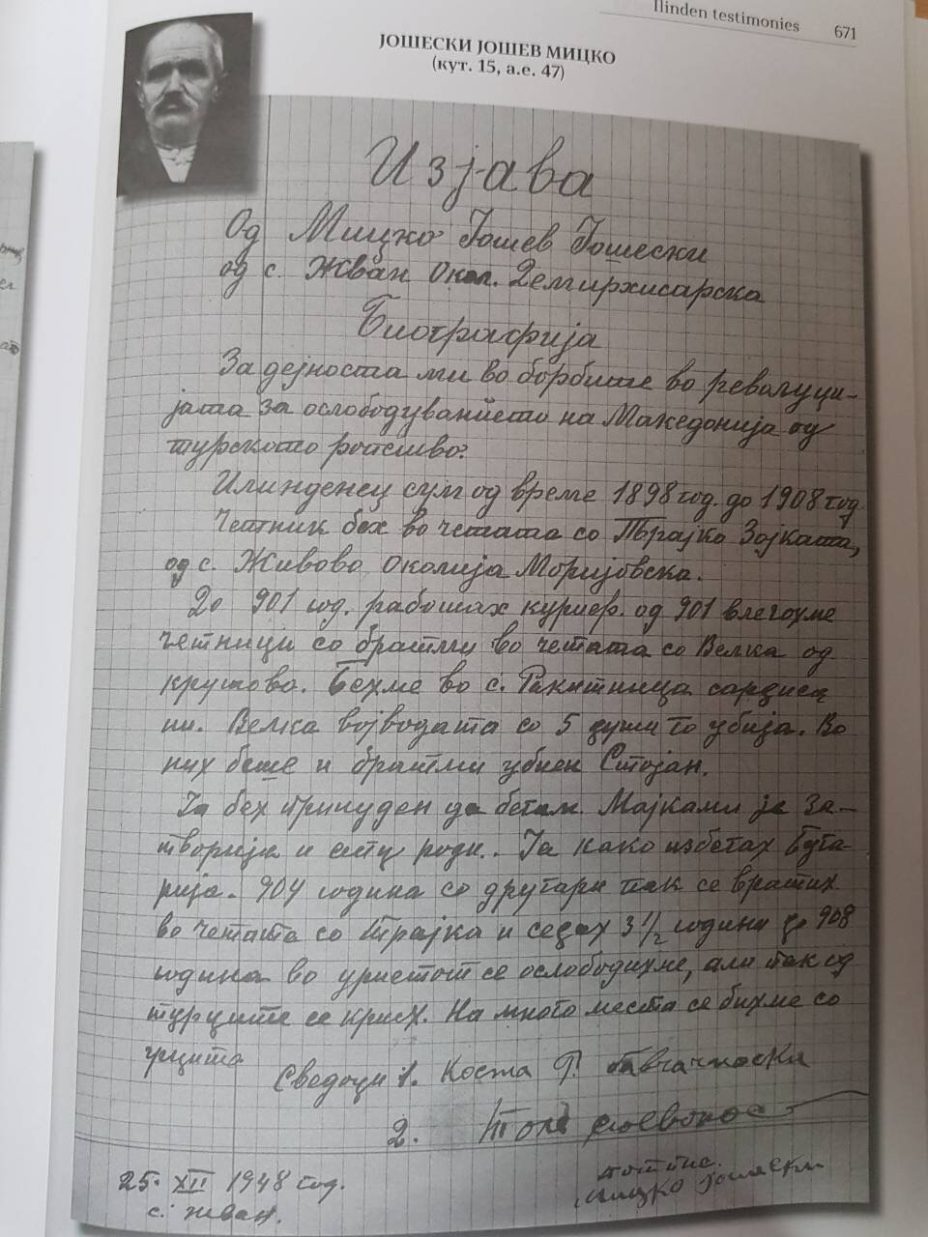 Ilinden testimonies 671
ЈОШЕСКИ ЈОШЕВ МИЦКО
(кут. 15, а.е. 47)
Изјава
Од Мицко Јошев Јошески
од с. Жван Окол. Демирхисарска
Биографија
За дејноста ми во борбите во револуци-
јата за ослободувањето на Македонија од
турското ропство:
Илинденец сум од време 1898 год. до 1908 год.
Четник бех во четата со Трајко Зојката,
од с. Живово Околија Моријовска.
До 901 год. работах куриер. од 901 влегохме
четници со братми во четата со Велка од
крушово. Бехме во с. Ракитница
ни. Велка војводата со 5 души го убија. Во
них беше и братми убиен Стојан.
Ја бех принуден да бегам. Мајками ја за-
творија и роди. Ја како избегах Буга-
рија. 904 година со другари пак се вратих
во четата со Трајка и седех 3 1/2 години до 908
година во уриетот се ослободихме, али пак од
турците се криех. На много места се бихме со
Сведоци 1. Коста
2.
25. XII 1948 год.
с. Жван.
потпис.
Мицко Јошески